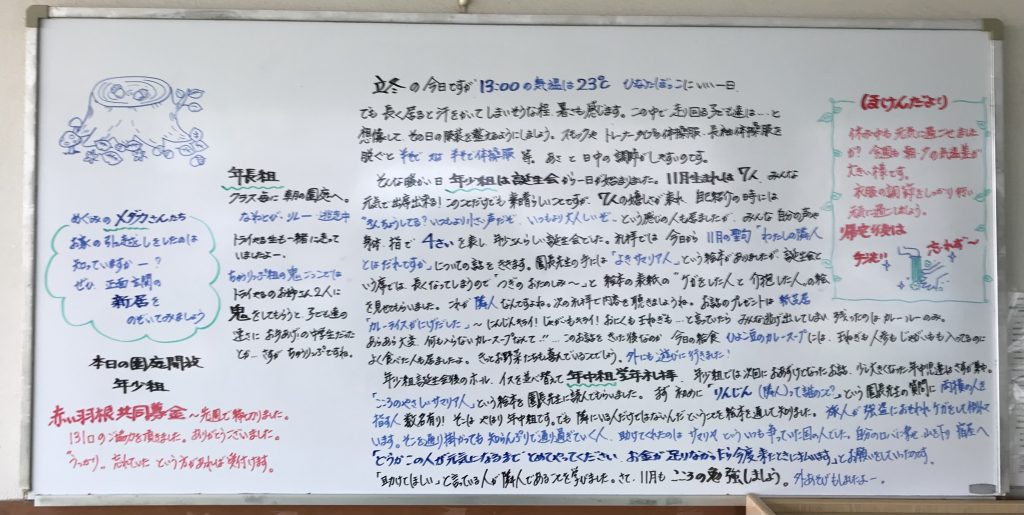 立冬の今日ですが 13:00の気温は23℃ ひなたぼっこにいい一日
でも長く居ると汗をかいてしまいそうな程 暑さも感じます。この中で走り回る子ども達は…と
想像して その日の服装を整えるようにしましょう。スモックや トレーナー
脱ぐと 半そで 又は 半そで体操服 等。 あさと日中の調節がしやすいのです。
そんな暖かい日 年少組は誕生会から一日が始まりました。11月生まれは7人、みんな
元気で出席出来る！このことだけでも素晴らしいことですが、7人の嬉しさが
いつもより小さい声だぞ、いつもより大人しいぞ、という感じの人も居ましたが、みんな 自分の声や
身体、指で 4さいを表し 年少さんらしい誕生会でした。礼拝では 今日から 11月の聖句 "わたしの隣人
とはだれですか" についての話をききます。園長先生の手には「よきサマリア人」という絵本がありましたが、誕生会と
いう席では 長くなってしまうので "つぎのおたのしみ〜" と 絵本の表紙の "ケガをした人と 介抱した人の絵
を見せてもらいました。これが隣人なんですよね。次の礼拝で内容を聴きましょうね。お話のプレゼントは 紙芝居
「カレーライスがにげだした」
よく食べた人も居ました。きっとお野菜たちも喜んでいることでしょう。外にも遊びに行きました！
年少組誕生会後のホール、イスを並べ替えて 年中組学年礼拝。
「こころのやさしいサマリア人」という絵本を園長先生に読んでもらいました。まず初めに「りんじん(隣人)って誰のこと?」という園長先生の質問に 両横の人を
指す人 数名有り！そこは やはり年中組です。でも 隣にいる人だけではないんだ ということを絵本を通して知りました。旅人が強盗におそわれ ケガをして倒れて
います。そこを通り掛かっても 知らんぷりで通り過ぎていく人、助けてくれたのは
「どうかこの人が元気になるまで とめてやってください お金が足りなかったら 今度来たときに払います」とお願いをしていったのです。
「助けてほしい」と言っている人が 隣人であることを学びました。さて、11月も こころの勉強しましょう。外あそびもしましたよー。
年長組
クラス毎に 朝の園庭へ。
なわとび・リレー・
トライやる生も一緒に走って
いましたよー。
ちゅうりっぷ組の鬼ごっこでは
トライやるのお姉さん2人に
鬼をしてもらうと 子ども達の
速さに お手あげの中学生だった
とか… さすが ちゅうりっぷですね。
めぐみのメダカさんたち
お家の引越しをしたのは
知っていますかー？
ぜひ 正面玄関の
新居を
のぞいてみましょう
本日の園庭開放
年少組
赤い羽根共同募金 〜先週で締め切りました。
131口のご協力を頂きました。ありがとうございました。
"うっかり、忘れていた" という方があれば 受付けます。
ほけんだより
休み中も元気に過ごせました
か？今週も朝・夕の気温差が
大きい様です。
衣服の調節をしっかり行い
元気に過ごしましょう。
帰宅後は
手洗い!! 忘れず〜